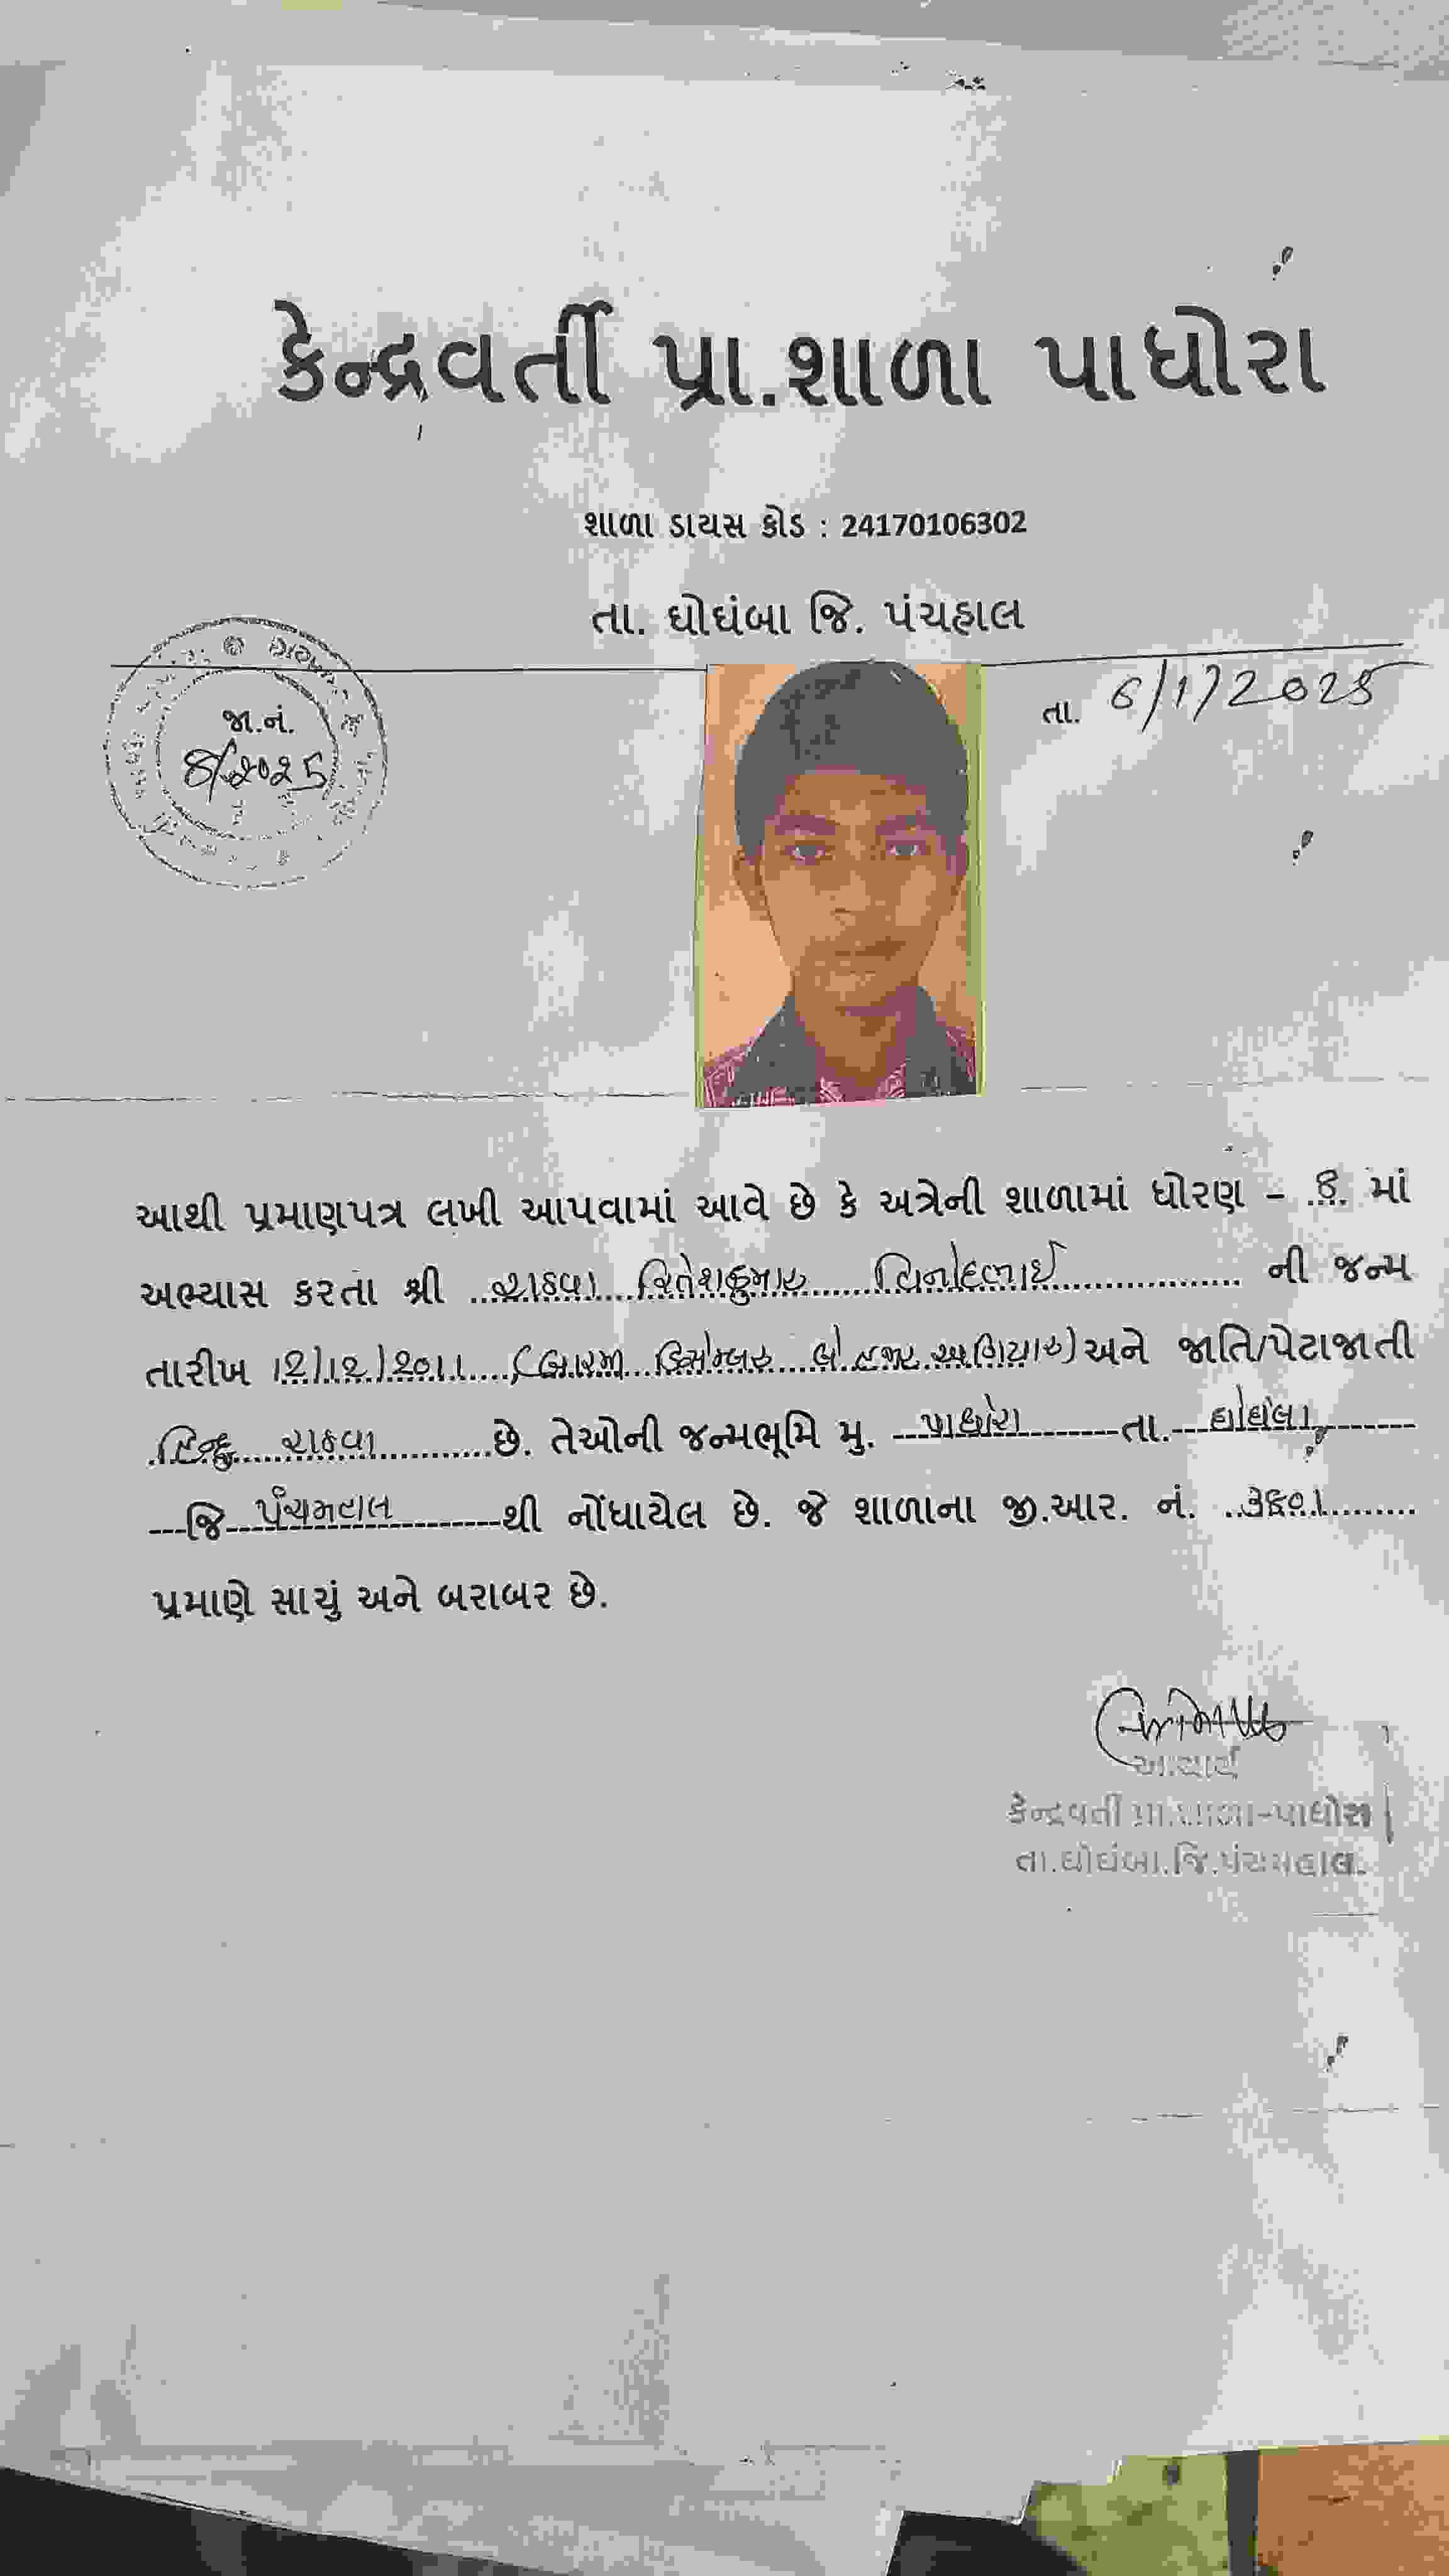 કેન્દ્રવર્તી પ્રા.શાળા પાધોરા
શાળા ડાયસ કોડ : 24170106302
તા. ઘોઘંબા જિ. પંચહાલ
જા.નં.
8/2025
તા. 6/1/2025
આથી પ્રમાણપત્ર લખી આપવામાં આવે છે કે અત્રેની શાળામાં ધોરણ – .8. માં
અભ્યાસ કરતા શ્રી રાઠવા મિતેશકુમાર વિનોદભાઈ ની જન્મ
તારીખ 12/12/2011 (બારમી ડિસેમ્બર બે હજાર અગિયાર) અને જાતિ/પેટાજાતી
હિન્દુ રાઠવા છે. તેઓની જન્મભૂમિ મુ. પાધોરા તા. ઘોઘંબા
જિ પંચમહાલ થી નોંધાયેલ છે. જે શાળાના જી.આર. નં.
પ્રમાણે સાચું અને બરાબર છે.
આચાર્ય
કેન્દ્રવર્તી પ્રા.શાળા-પાધોરા
તા.ઘોઘંબા.જિ.પંચમહાલ.